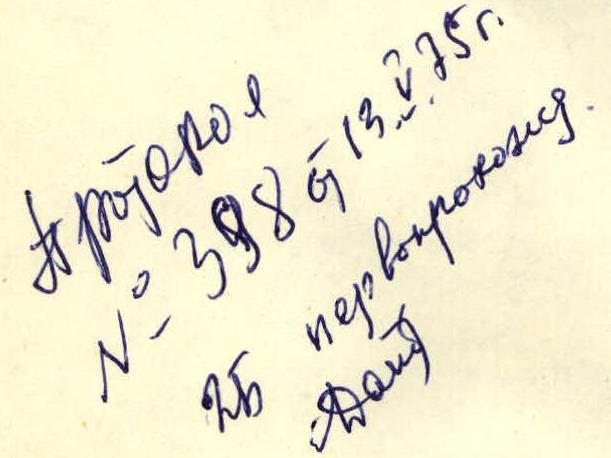 Протокол
№ 398 от 13.V.75г.
2б первопрохожд.